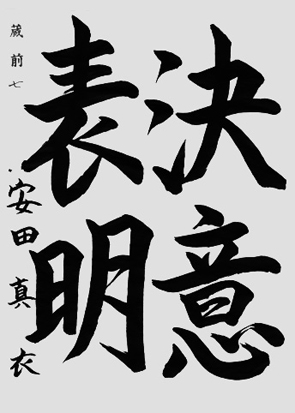 決意
表明
蔵前七
安田真衣